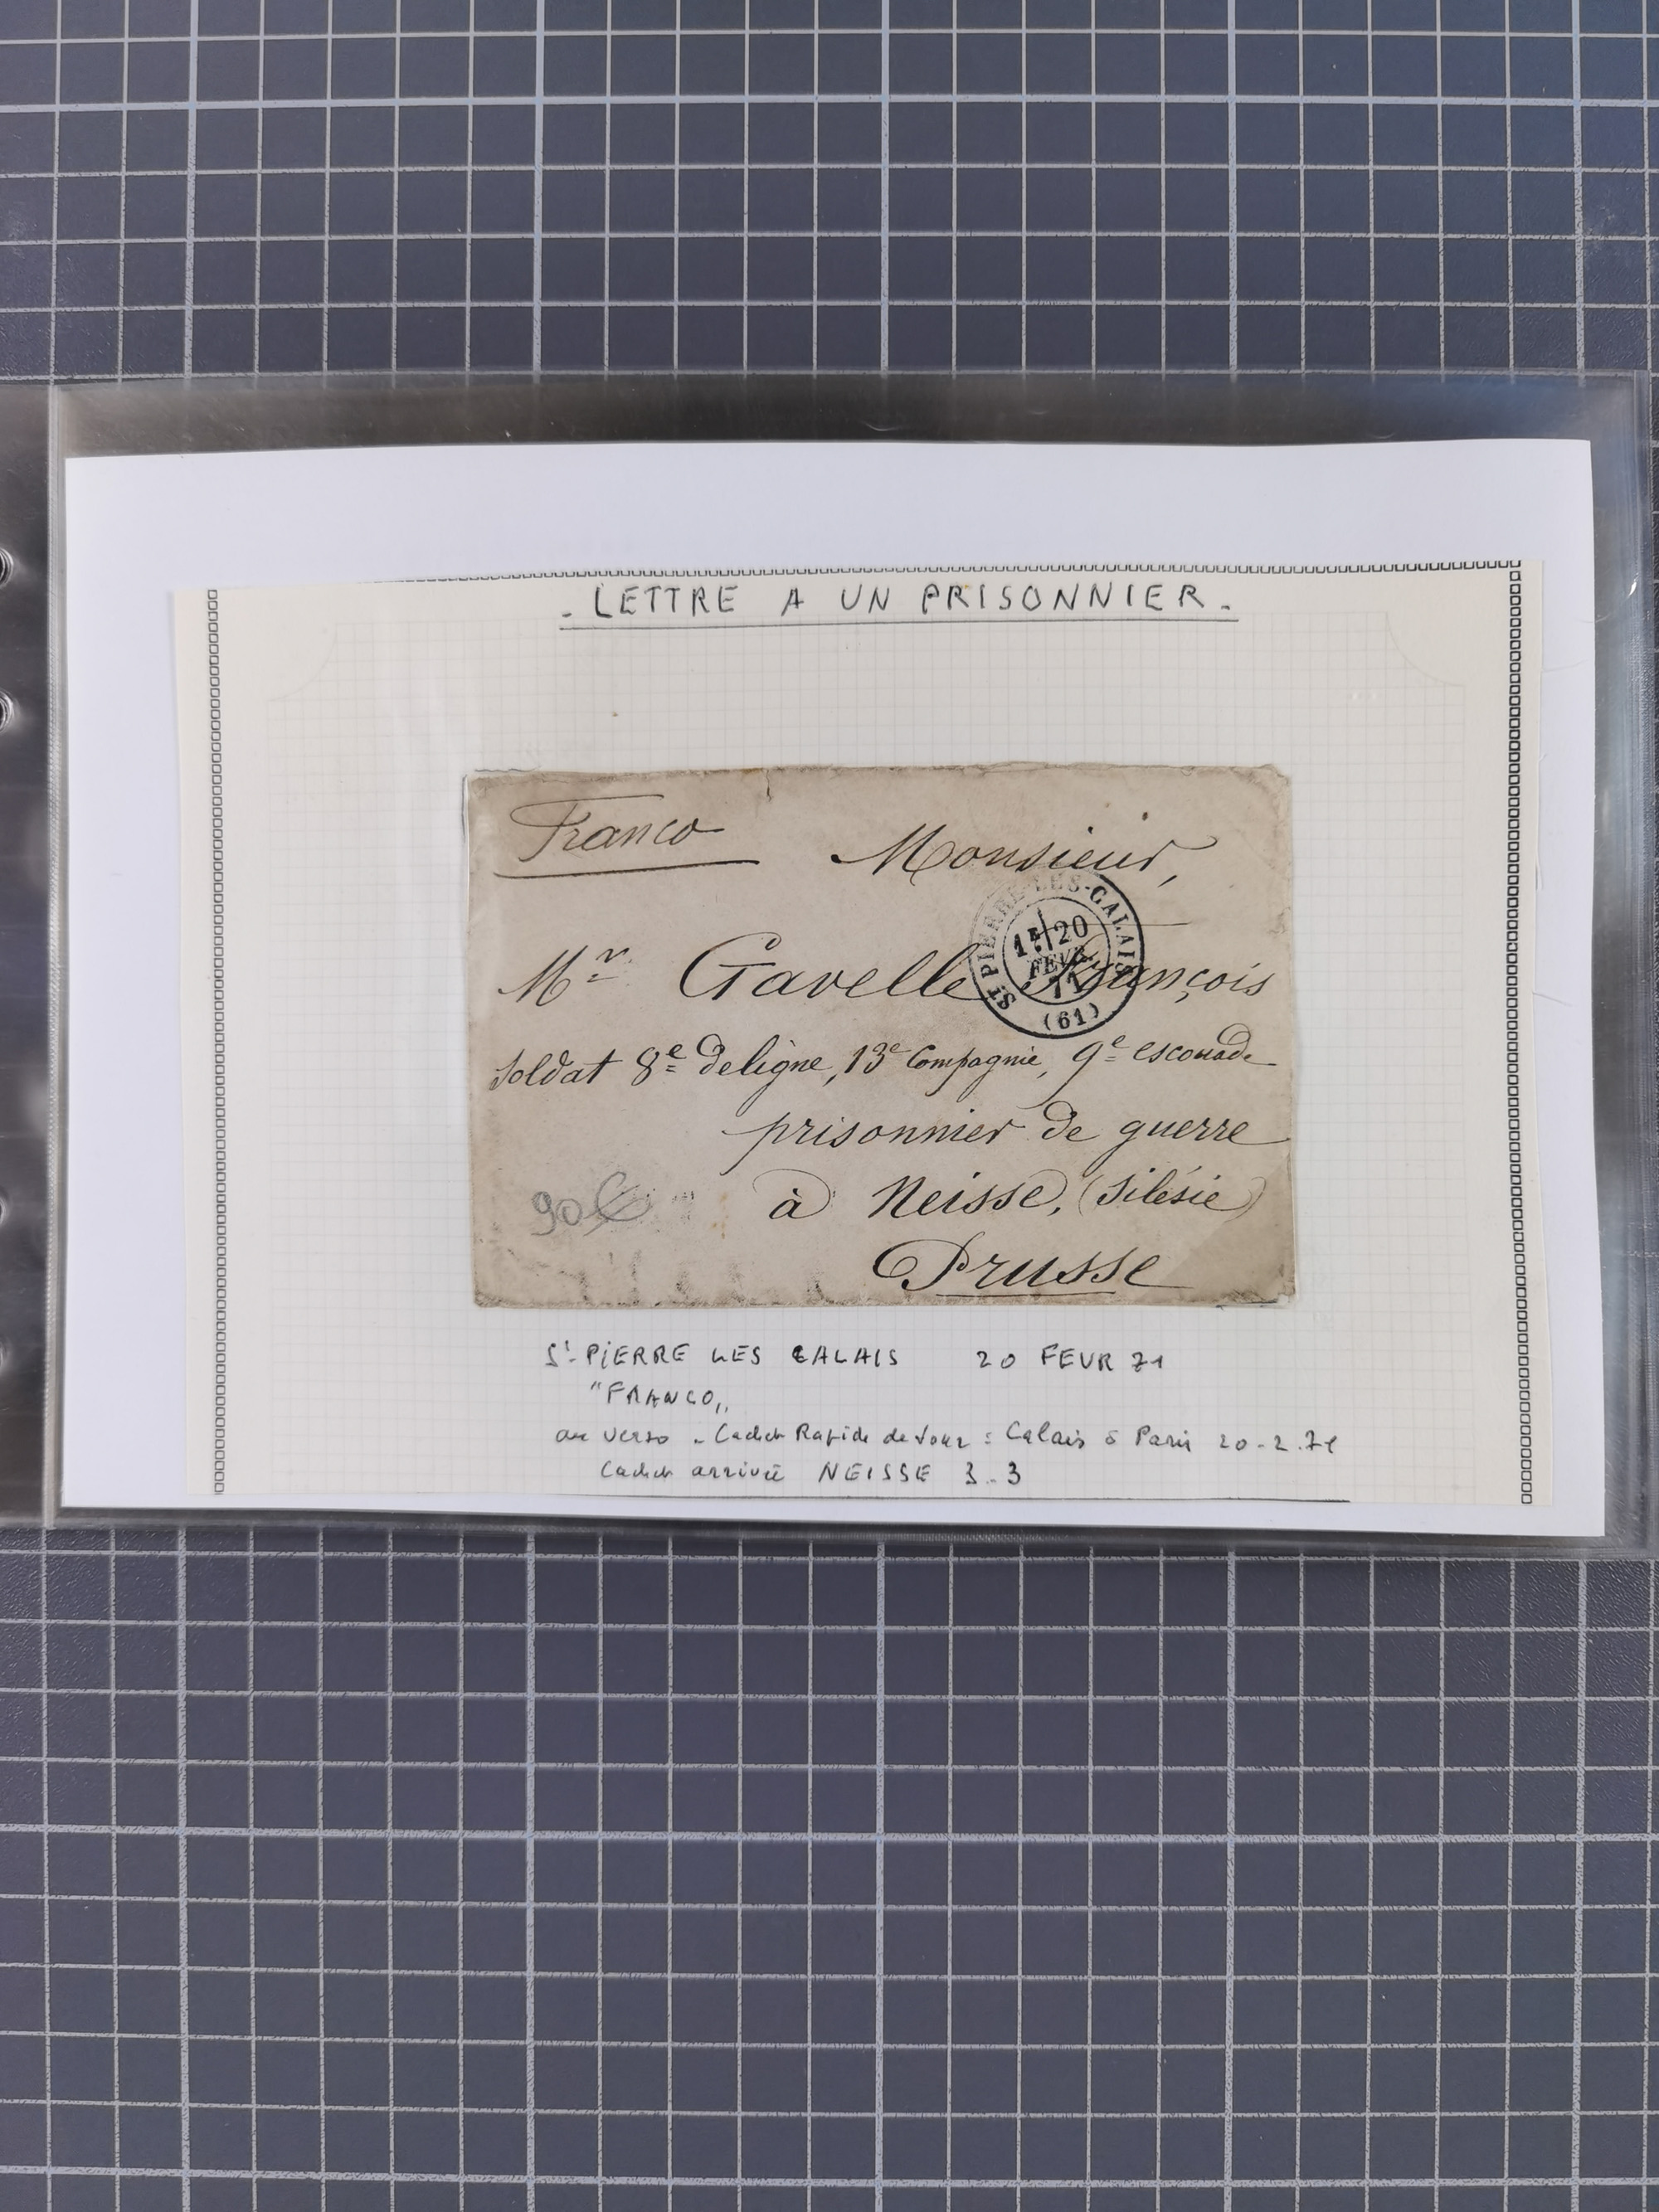 - LETTRE A UN PRISONNIER -
Franco
Monsieur,
ST PIERRE-LES-CALAIS
1E/20
FEVR.
71
(61)
Mr Gavelle François
soldat 8e de ligne, 13e Compagnie, 9e escouade
prisonnier de guerre
à Neisse, (Silésie)
Prusse
90€
St PIERRE LES CALAIS 20 FEVR 71
"FRANCO"
au verso - Cachet Rapide de Jour : Calais à Paris 20-2-71
Cachet arrivée NEISSE 3-3